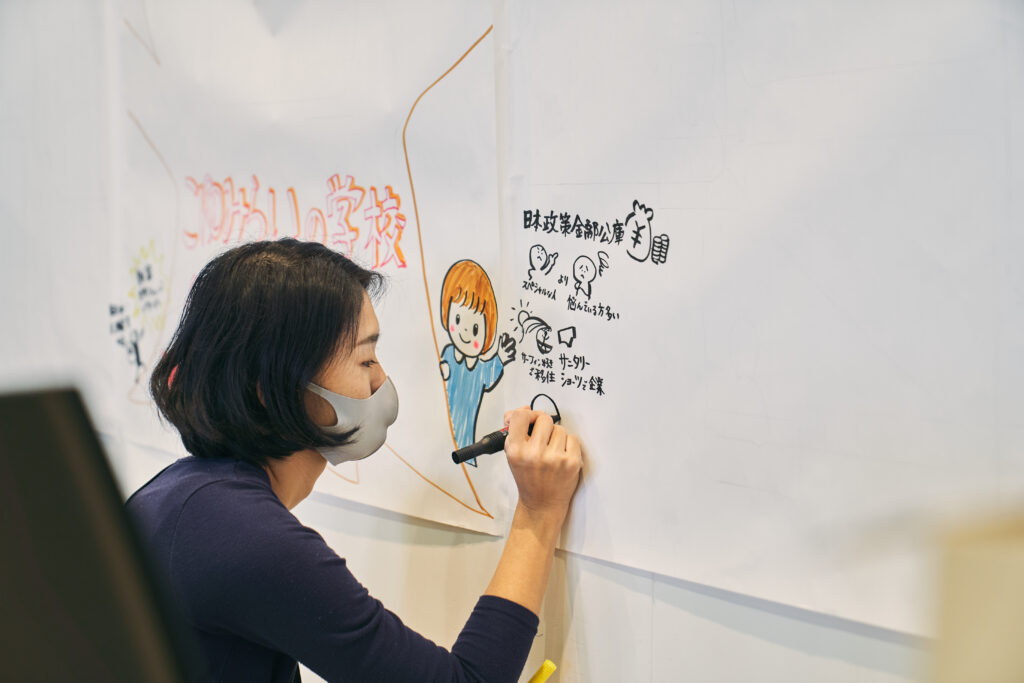 こゆみらいの学校
日本政策金融公庫 ¥
スペシャルな人 より 悩んでいる方多い
サーフィン好き
で移住
サニタリー
ショーツで企業